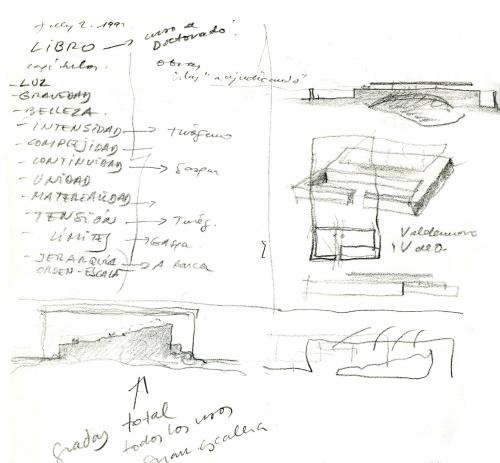 July 2. 1991
LIBRO → curso de Doctorado.
capítulos. obras
- LUZ
- GRAVEDAD
- BELLEZA.
- INTENSIDAD → Turégano
- COMPLEJIDAD
- CONTINUIDAD → Gaspar
- UNIDAD
- MATERIALIDAD →
- TENSIÓN → Tureg.
LÍMITES → Gaspar
- JERARQUÍA → A Barca
ORDEN - ESCALA
Valdemoro
gradas total
todos los usos
gran escalera